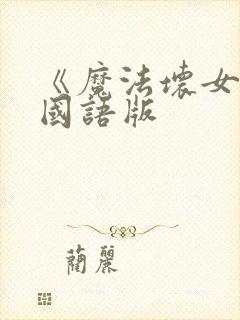 《魔法壞女
國語版
蘭麗